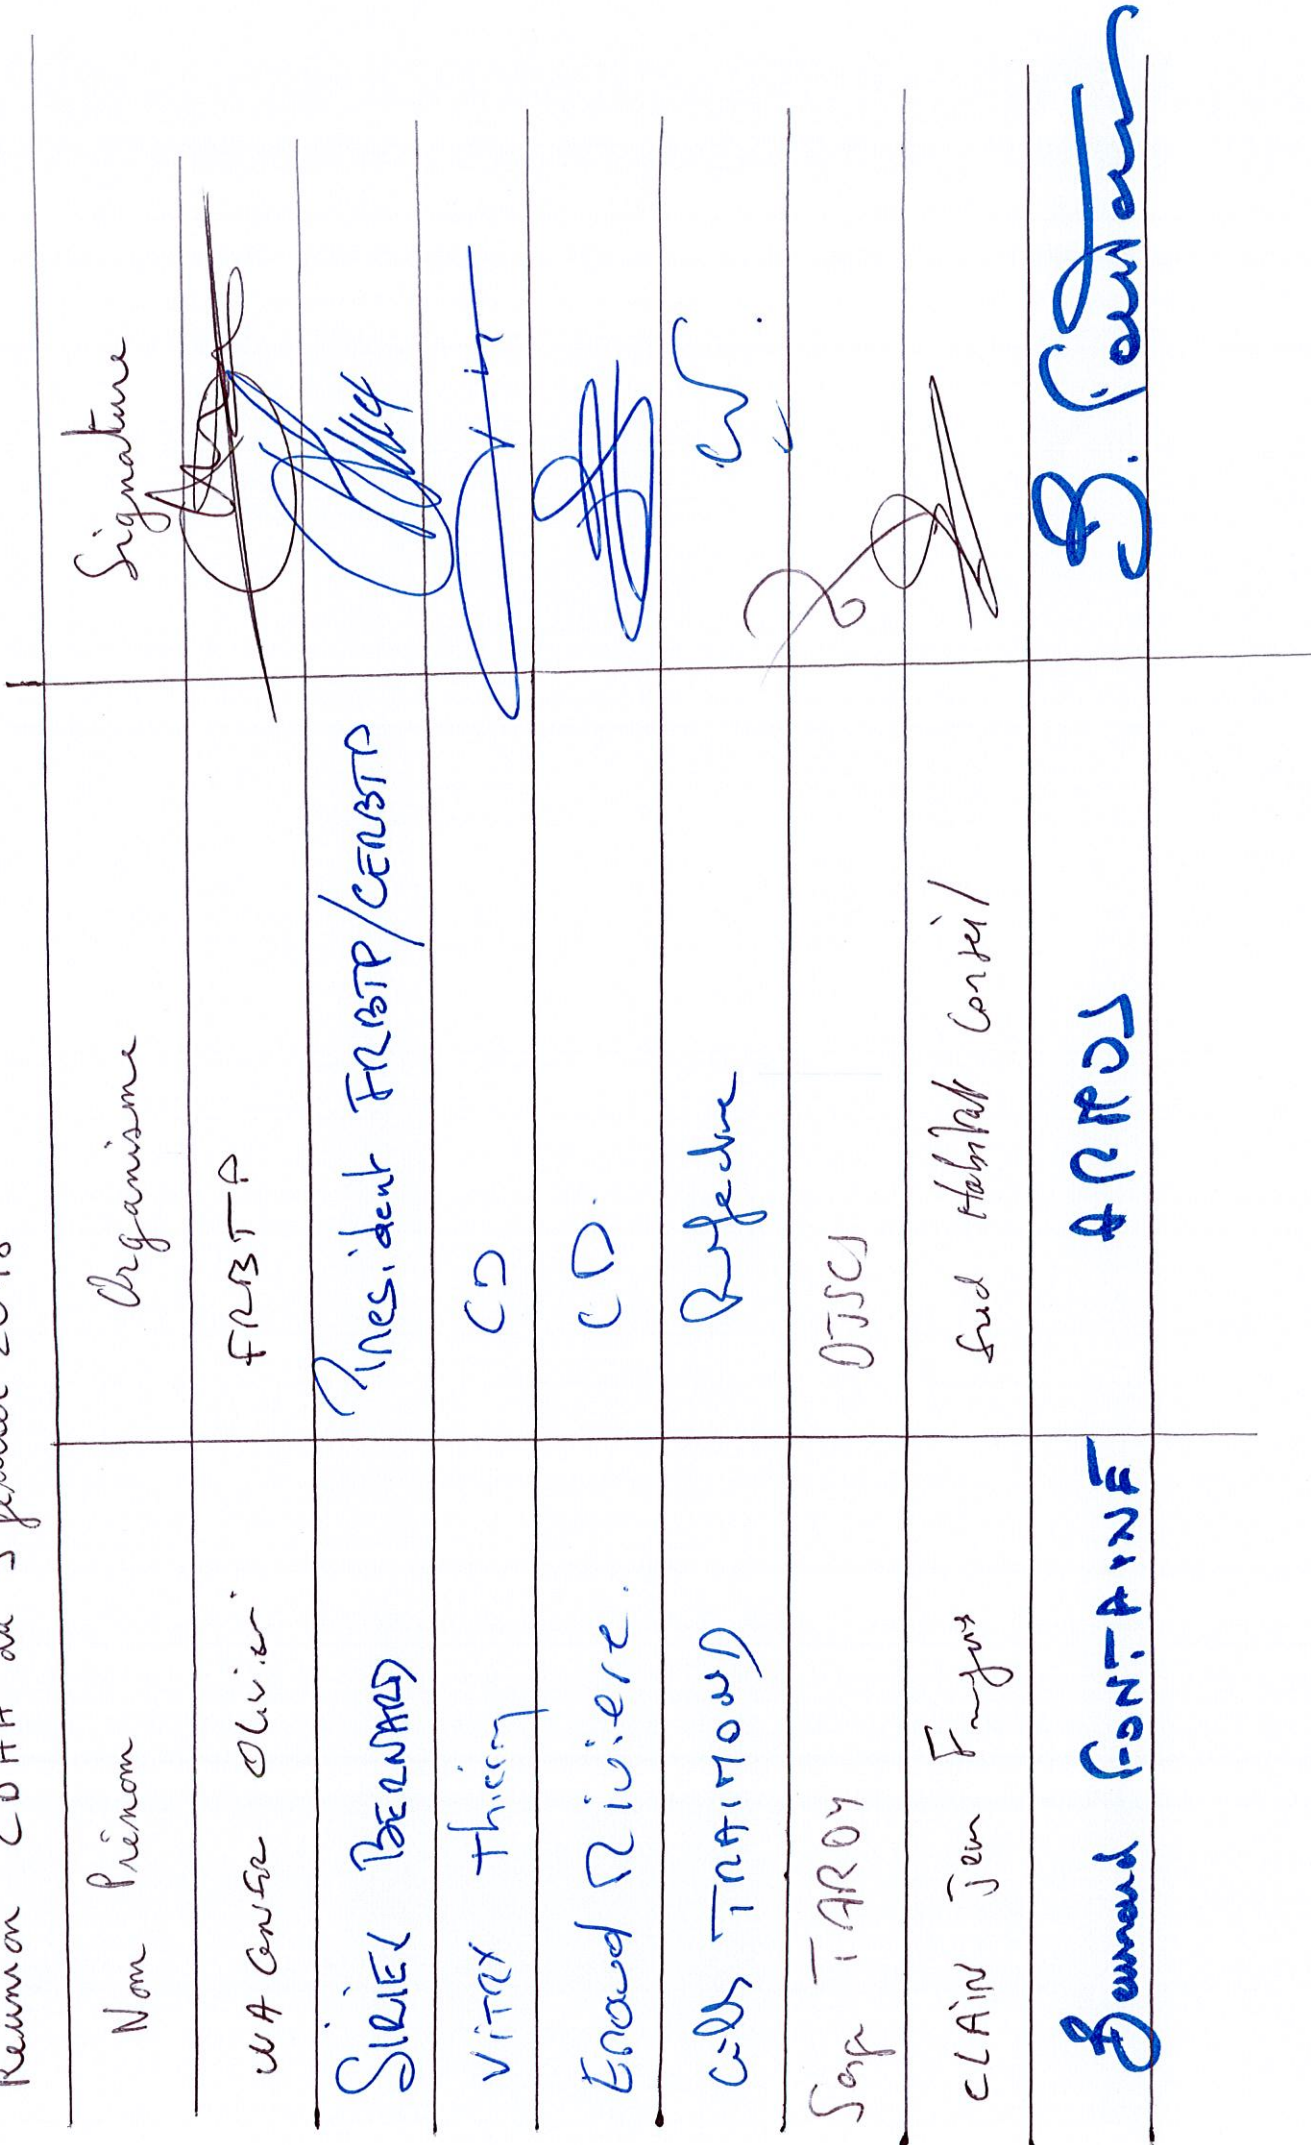 Réunion CDHH du 5 février 2018
Nom Prénom Organisme Signature
Olivier FRBTP
SIRIEX BERNARD President FRBTP/CERBTP
VITRY Thierry CD
Eraud Riviere. CD.
Gilles TRAIMOND Préfecture
Serge TARDY DJSCS
CLAIN Jean François Sud Habitat Conseil
Bernard FONTAINE ARMOS B. Fontaine